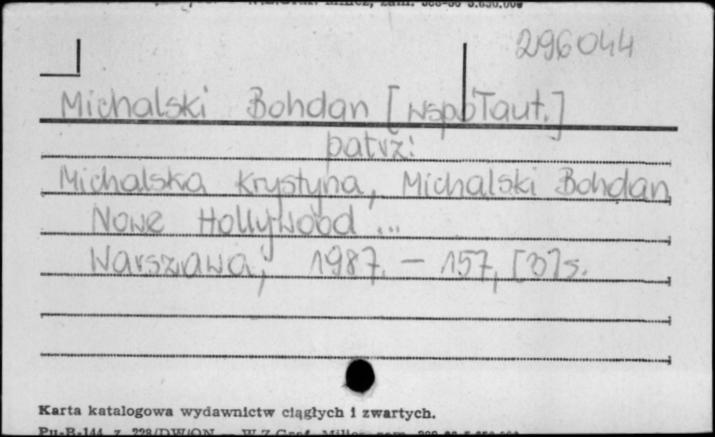 296044
Michalski Bohdan [współaut.]
patrz:
Michalska Krystyna, Michalski Bohdan
Nowe Hollywood ...
Warszawa, 1987. — 157, [3] s.
Karta katalogowa wydawnictw ciągłych i zwartych.
Pu-B-144 z. 228/DW/ON — W.Z.Graf.